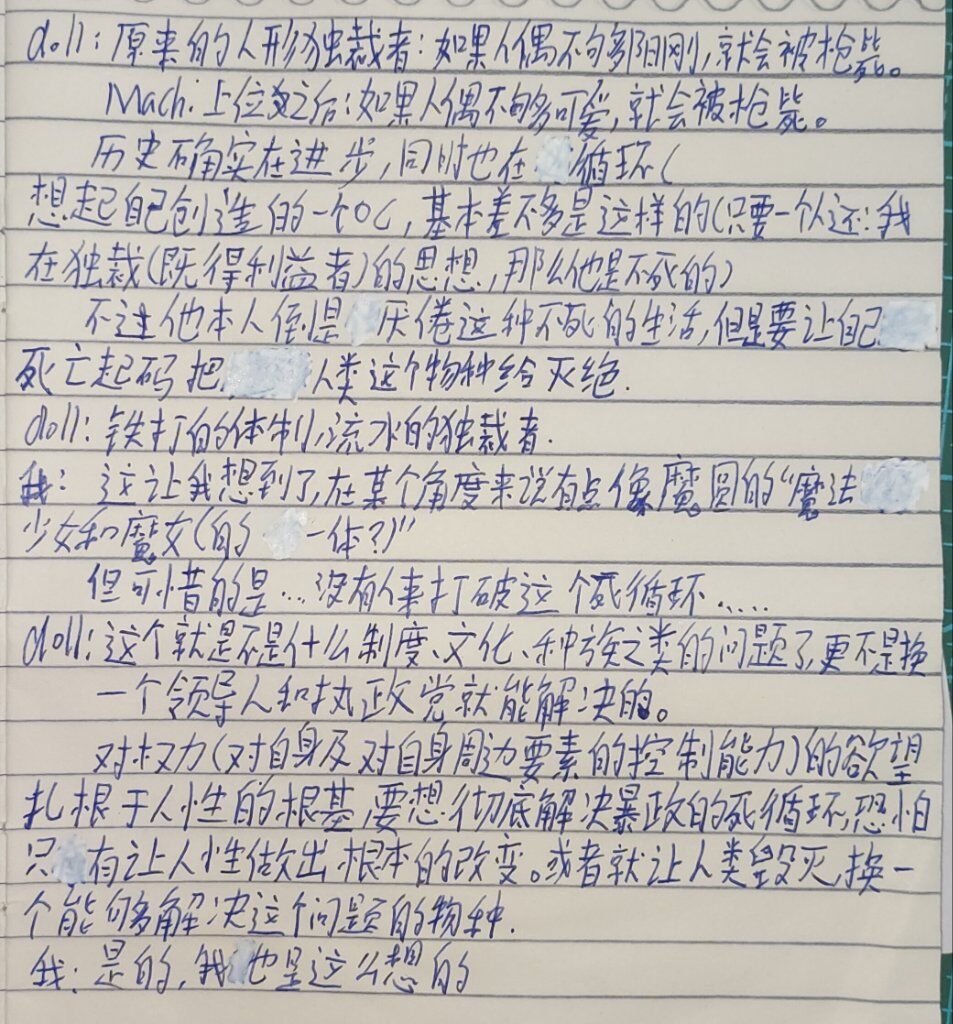 doll：原来的人形独裁者：如果人偶不够阳刚，就会被枪毙。
Mach：上位之后：如果人偶不够可爱，就会被枪毙。
历史确实在进步，同时也在循环（
想起自己创造的一个OC，基本差不多是这样的（只要一个人还
在独裁（既得利益者）的思想，那么他是不死的）
不过他本人倒是厌倦这种不死的生活，但是要让自己
死亡起码把人类这个物种给灭绝.
doll：铁打的体制，流水的独裁者.
我：这让我想到了，在某个角度来说有点像魔圆的“魔法
少女和魔女（的一体？）”
但可惜的是…没有人来打破这个死循环……
doll：这个就是不是什么制度、文化、种族之类的问题了，更不是换
一个领导人和执政党就能解决的。
对权力（对自身及对自身周边要素的控制能力）的欲望
扎根于人性的根基，要想彻底解决暴政的死循环，恐怕
只有让人性做出根本的改变。或者就让人类毁灭，换一
个能够解决这个问题的物种.
我：是的，我也是这么想的